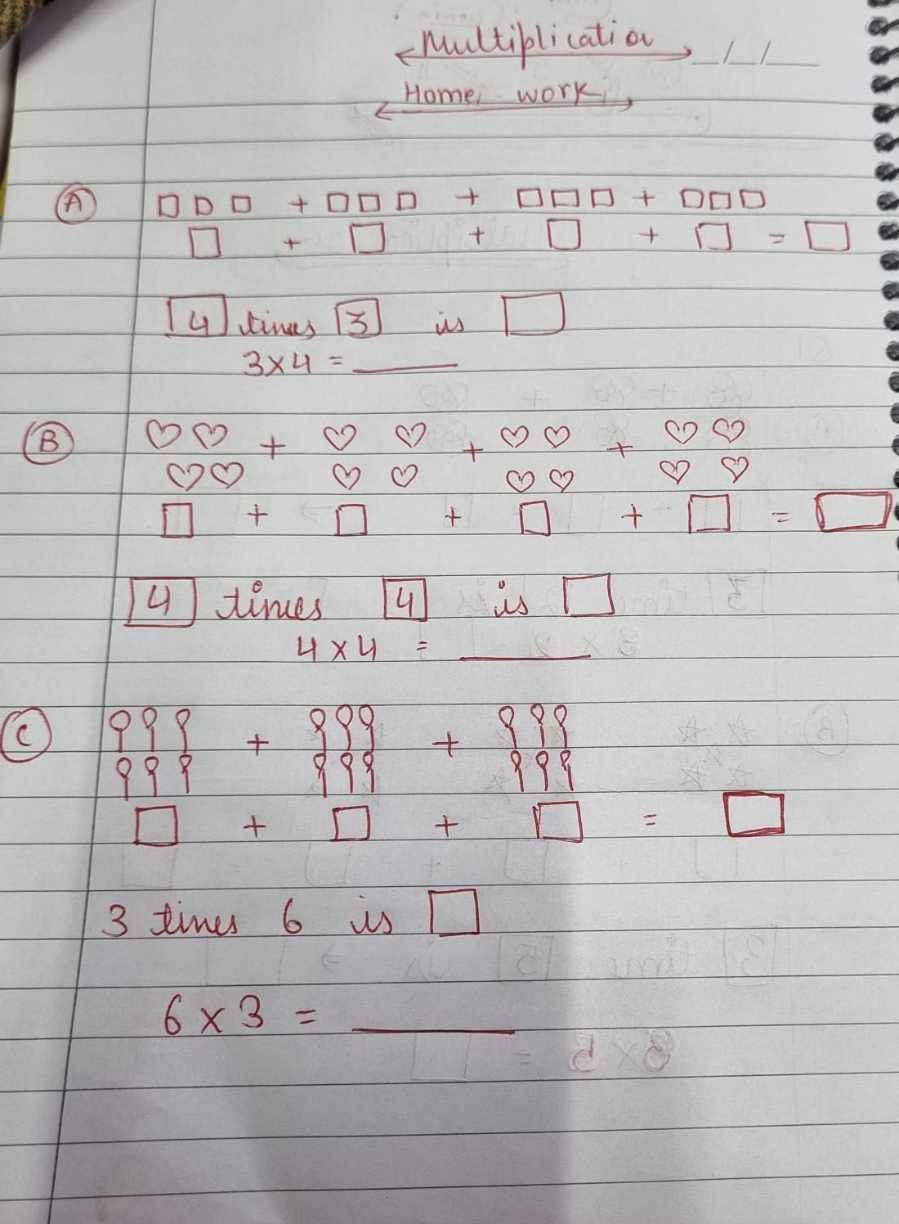 Multiplication
_/_/_
Home work
A
□ □ □ + □ □ □ + □ □ □ + □ □ □
□ + □ + □ + □ = □
4 times 3 is □
3×4 = ____
B
♡ ♡ + ♡ ♡ + ♡ ♡ + ♡ ♡
♡ ♡ ♡ ♡ ♡ ♡ ♡ ♡
□ + □ + □ + □ = □
4 times 4 is □
4 × 4 = ____
C
+ +
□ + □ + □ = □
3 times 6 is □
6 × 3 = ____